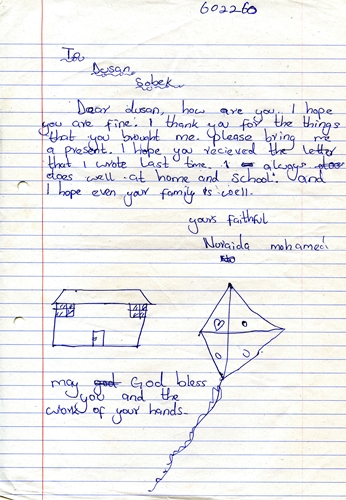 602260
To
Dusan
Sobek
Dear dusan, how are you. I hope
you are fine. I thank you for the things
that you brought me. please bring me
a present. I hope you recieved the letter
that I wrote last time. I always
does well at home and school. and
I hope even your family is well.
yours faithful
Nuraida mohamed
may god God bless
you and the
work of your hands.